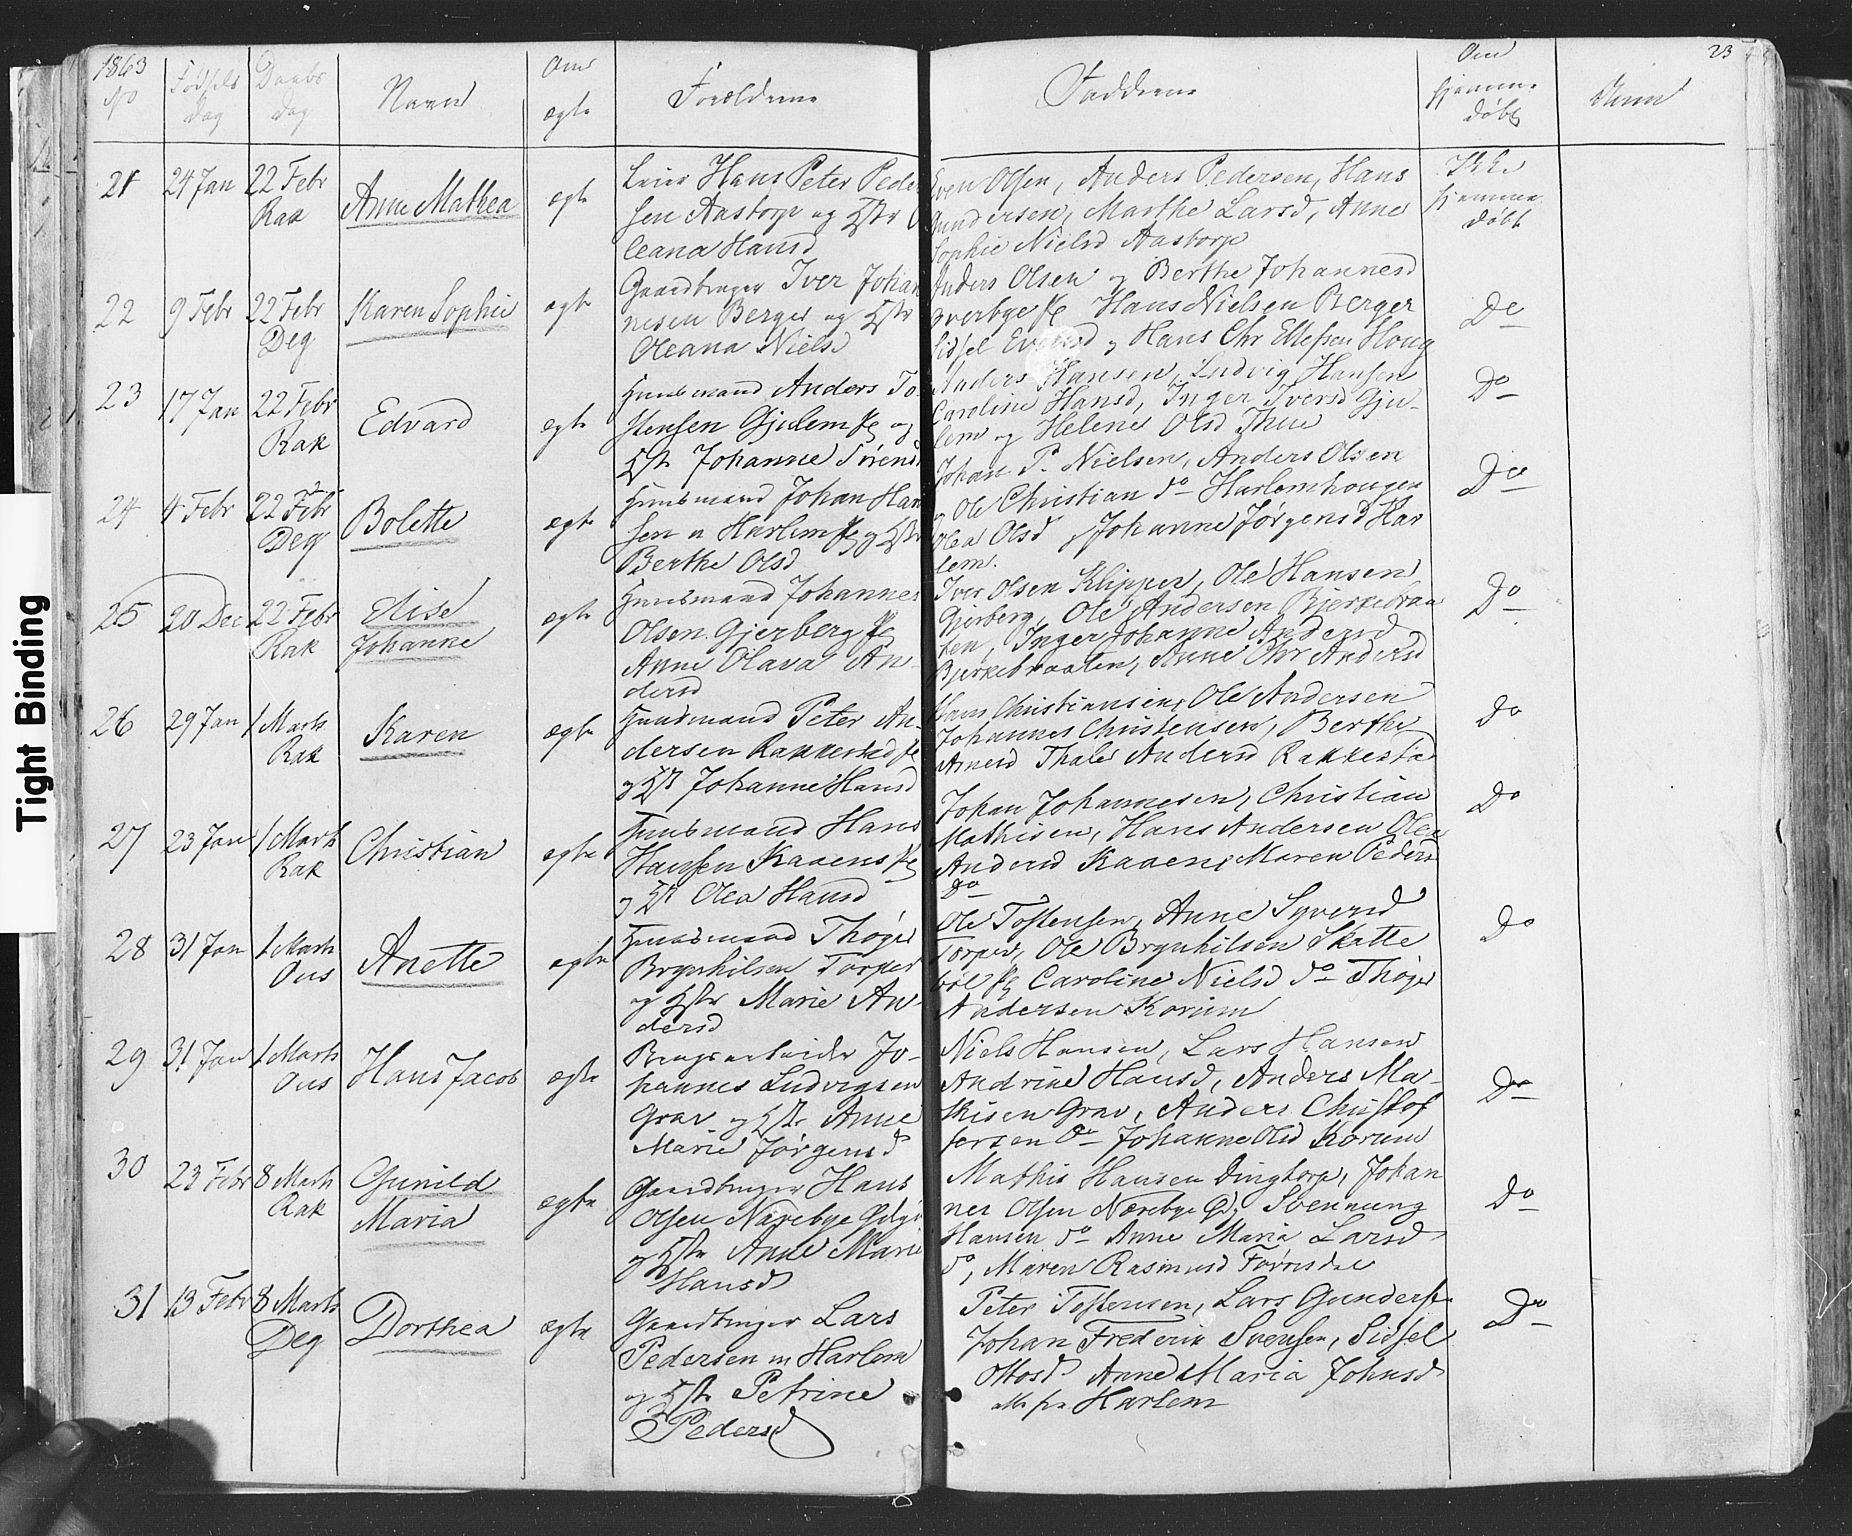 1863
No
Fødsels
dag
Daabs
dag
Navn
Om
ægte
Forældrene
Fadderne
Om
hjemme
døbt
Anm
23
21 24 Jan 22 Febr
Rak
Anne Mathea
ægte
Leier Hans Peter Peder
sen Aastorp og Hstr O
leana Hansd
Even Olsen, Anders Pedersen, Hans
Gundersen, Marthe Larsd, Anne
Sophie Nielsd Aastorp
Ikke
hjemme
døbt
22 9 Febr 22 Febr
Deg
Karen Sophie
ægte
Gaardbruger Iver Johan
nesen Berger og Hstr
Oleana Nielsd
Anders Olsen og Berthe Johannesd
Hans Nielsen Berger
Sidsel og Hans Chr Ellefsen Houg
Do
23 17 Jan 22 Febr
Rak
Edvard
ægte
Huusmand Anders To
stensen Gjulem og
Hstr Johanne Sørensd
Anders Hansen, Ludvig Hansen
Caroline Hansd, Inger Iversd Gju-
lem og Helene Olsd Thue
Do
24 4 Febr 22 Febr
Deg
Bolette
ægte
Huusmand Johan Han
sen u Harlem og Hstr
Berthe Olsd
Johan P. Nielsen, Anders Olsen
og Ole Christian do Harlemhougen
Olea Olsd, Johanne Jørgensd Har
lem.
Do
25 20 Dec 22 Febr
Rak
Elise
Johanne
ægte
Huusmand Johannes
Olsen Gjerberg
Anne Olava An-
dersd
Iver Olsen Klipper, Ole Hansen
Gjerberg, Ole Andersen Bjerkebraa
ten, Inger Johanne Andersd
Bjerkebraaten, Anne Chr Andersd
Do
26 29 Jan 1 Marts
Rak
Karen
ægte
Huusmand Peter An-
dersen Rakkestad
og Hst Johanne Hansd
Hans Christiansen, Ole Andersen
Johannes Christensen, Berthe
Arnesd Thale Andersd Rakkestad
Do
27 23 Jan 1 Marts
Rak
Christian
ægte
Huusmand Hans
Hansen Kaaens
og Hst Olea Hansd
Johan Johannesen, Christian
Mathisen, Hans Andersen Olea
Andersd Kaaen, Maren Pedersd
Do
Do
28 31 Jan 1 Marts
Ous
Anette
ægte
Huusmand Thøger
Brynhilsen Torper
og Hstr Marie An-
dersd
Ole Tostensen, Anne Syversd
Torper, Ole Brynhilsen Skatte
bøl Caroline Nielsd do Thøger
Andersen Korum
Do
29 31 Jan 1 Marts
Ous
Hans Jacob
ægte
Brugsarbeider Jo-
hannes Ludvigsen
Grav og Hstr Anne
Marie Jørgensd
Niels Hansen, Lars Hansen
Andrine Hansd, Anders Ma-
thisen Grav, Anders Christof
fersen do Johanne Olsd Korum
Do
30 23 Febr 8 Marts
Rak
Gunild
Maria
ægte
Gaardbruger Hans
Olsen Nærebye
og Hstr Anne Marie
Hansd
Mathis Hansen Dingtorp, Johan
nes Olsen Nærebye Svennung
Hansen do Anne Maria Larsd
do, Maren Rasmusd
Do
31 13 Febr 8 Marts
Deg
Dorthea
ægte
Gaardbruger Lars
Pedersen m Harlem
og Hstr Petrine
Pedersd
Peter Tostensen, Lars Gunders
Johan Frederik Svensen, Sidsel
Ottosd Anne Maria Johnsd
alle fra Harlem
Do
Tight Binding